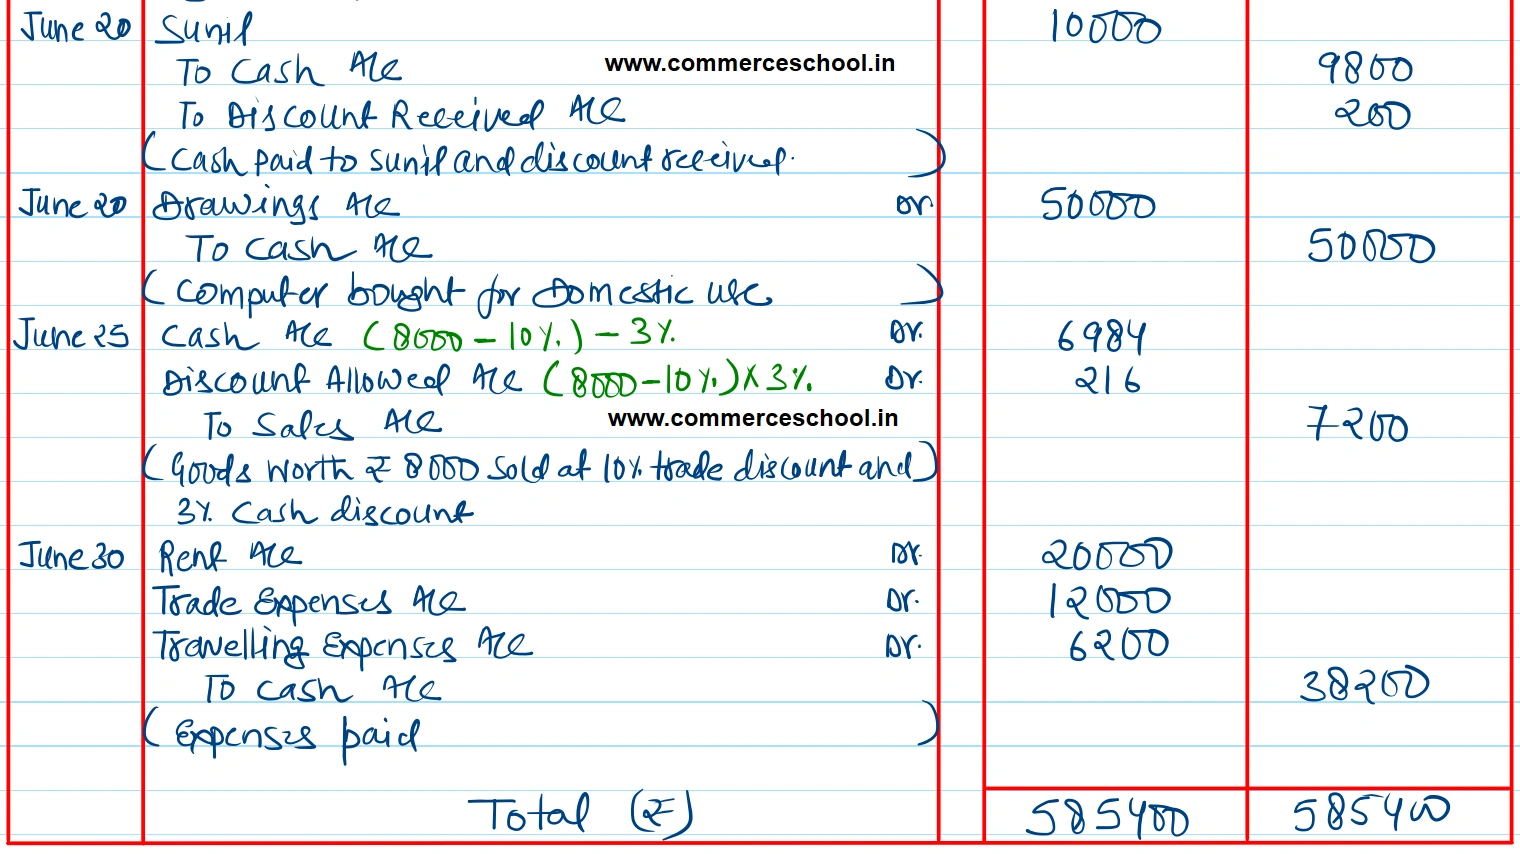 June 20 Sunil 10000
To Cash A/c www.commerceschool.in 9800
To Discount Received A/c 200
(Cash paid to Sunil and discount received.)
June 20 Drawings A/c Dr. 50000
To Cash A/c 50000
(Computer bought for Domestic use)
June 25 Cash A/c (8000 - 10%) - 3% Dr. 6984
Discount Allowed A/c (8000 - 10%) X 3% Dr. 216
To Sales A/c www.commerceschool.in 7200
(Goods worth ₹ 8000 sold at 10% trade discount and)
3% Cash discount
June 30 Rent A/c Dr. 20000
Trade Expenses A/c Dr. 12000
Travelling Expenses A/c Dr. 6200
To Cash A/c 38200
(Expenses paid)
Total (₹) 585400 585400